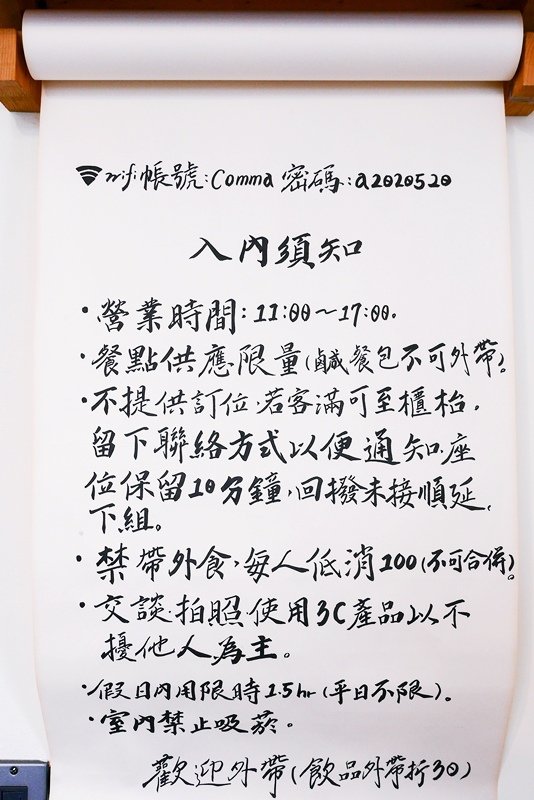 wifi帳號:Comma 密碼:a2020520
入內須知
·營業時間:11:00~17:00.
·餐點供應限量(鹹餐包不可外帶)。
·不提供訂位,若客滿可至櫃枱,
留下聯絡方式以便通知.座
位保留10分鐘,回撥未接順延
下組。
·禁帶外食,每人低消100(不可合併)。
·交談.拍照.使用3C產品以不
擾他人為主。
·假日內用限時1.5hr(平日不限)。
·室內禁止吸菸。
歡迎外帶(飲品外帶折30)